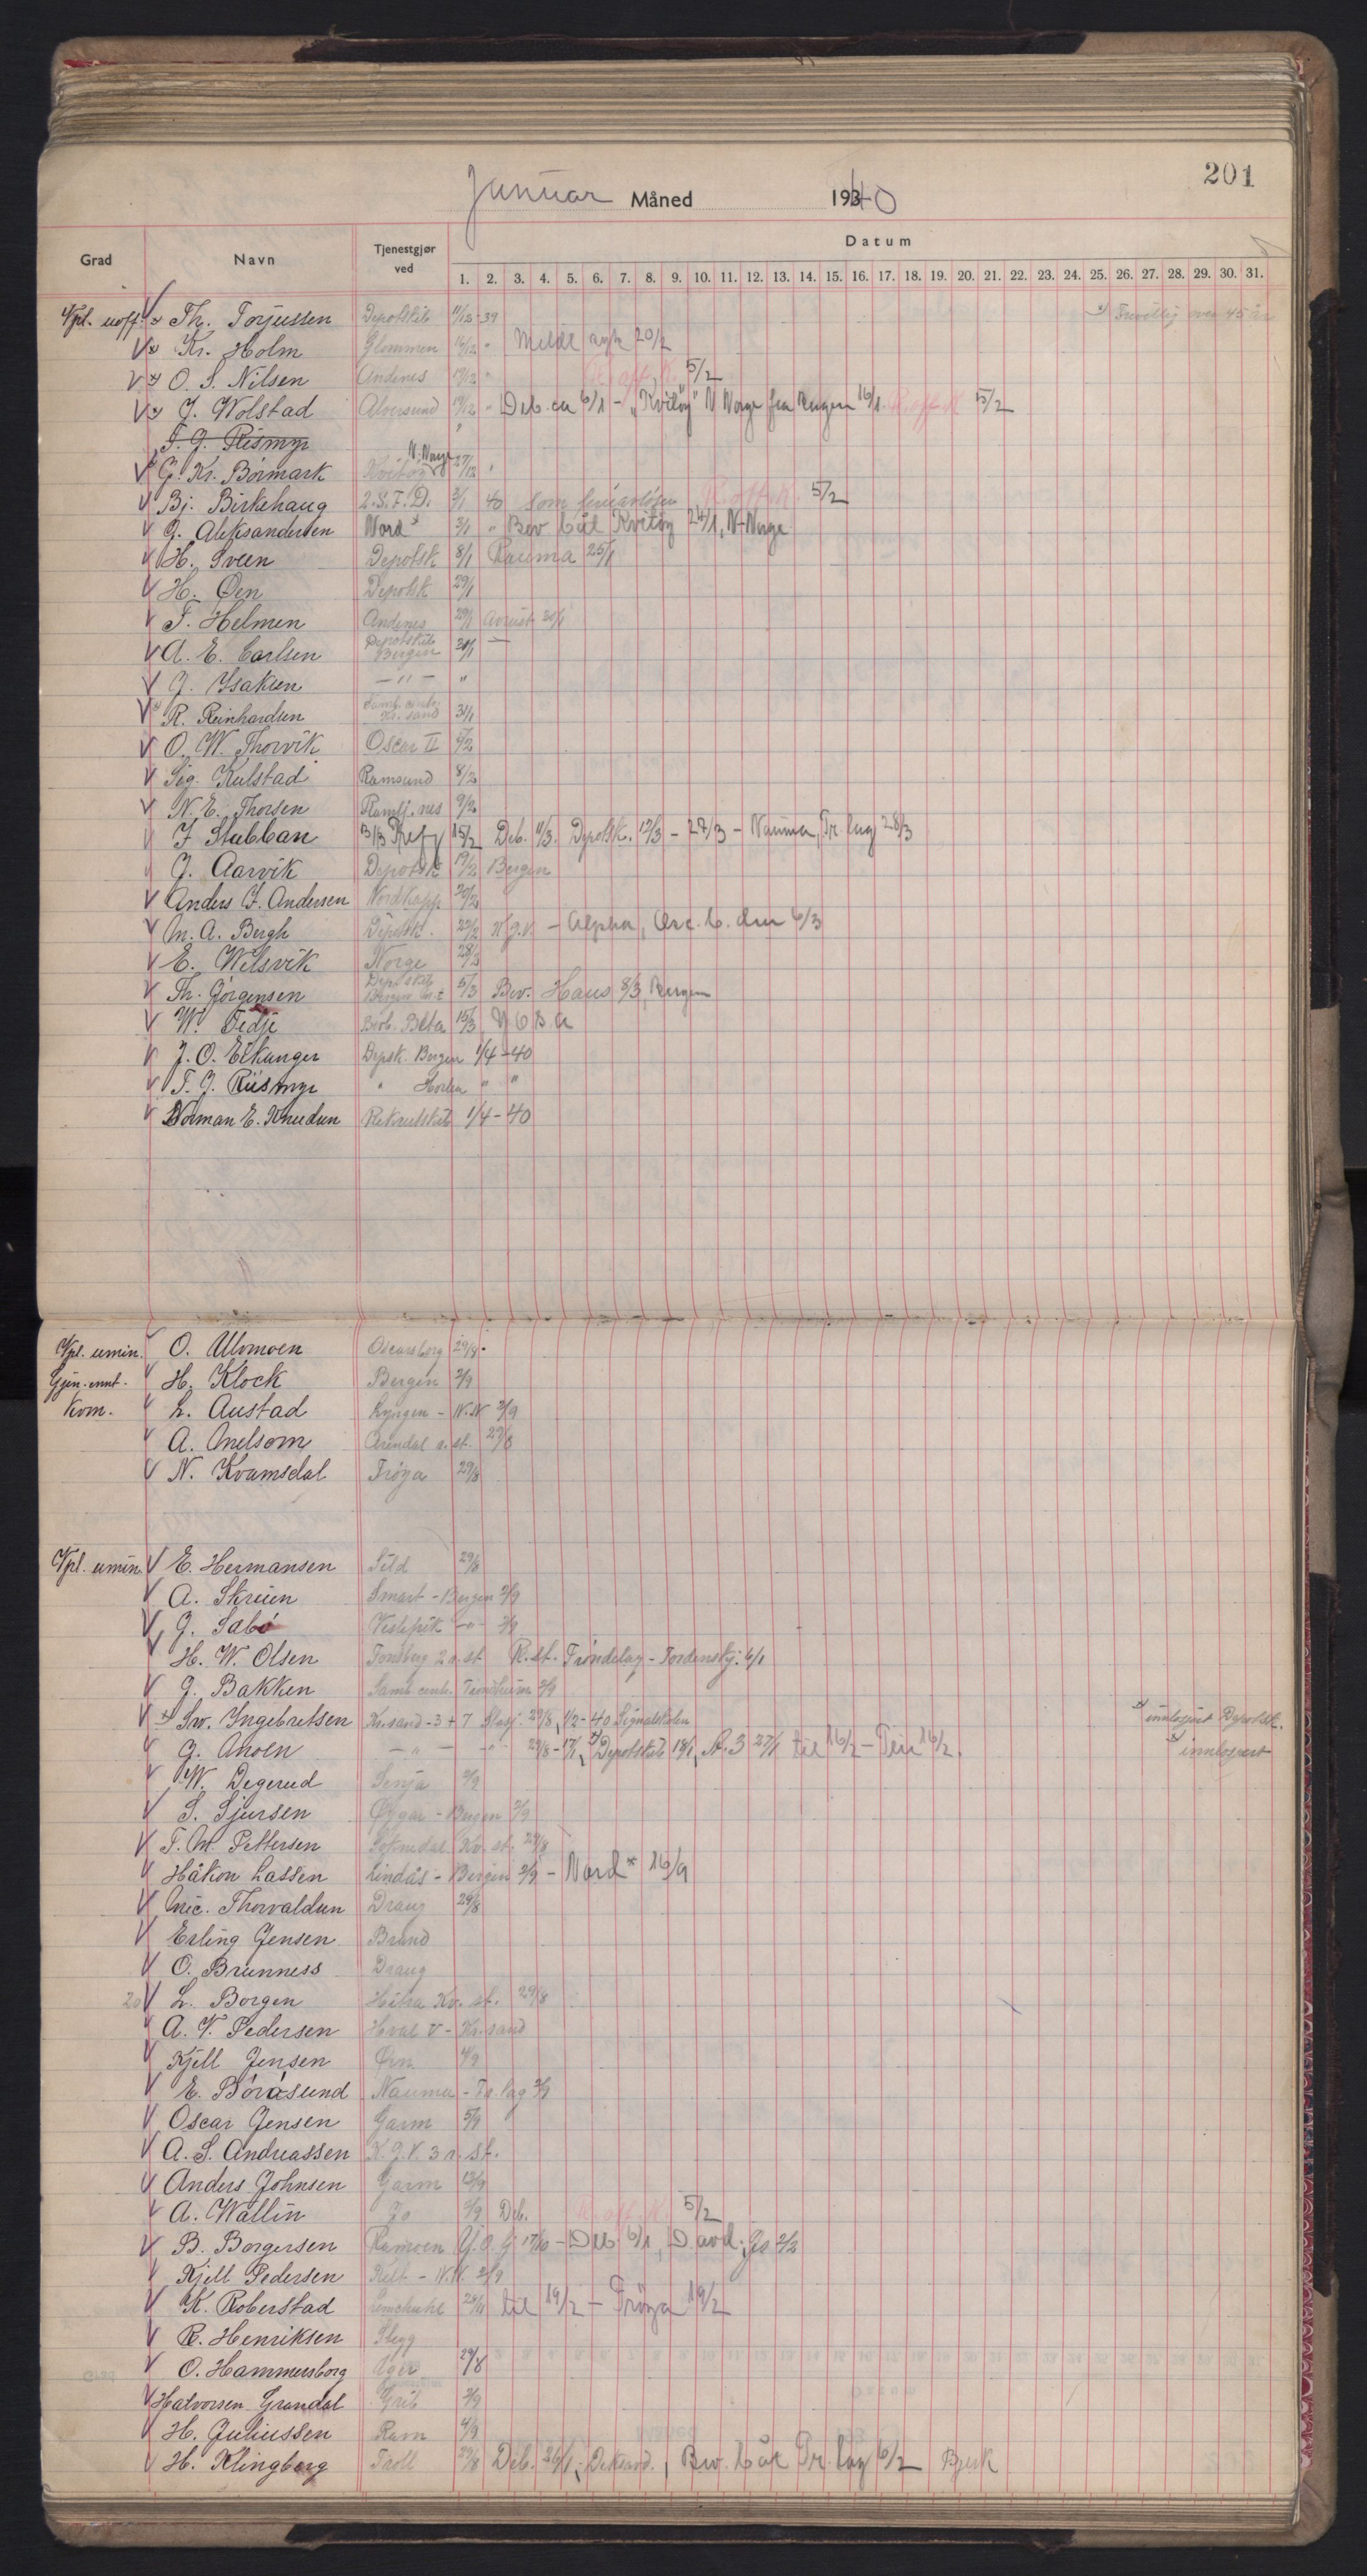 201
Januar Måned 1940
Grad Navn Tjenestgjør ved Datum
1. 2. 3. 4. 5. 6. 7. 8. 9. 10. 11. 12. 13. 14. 15. 16. 17. 18. 19. 20. 21. 22. 23. 24. 25. 26. 27. 28. 29. 30. 31.
Vpl. uoff. x) Th. Torjussen Depotskib 11/12-39 x) Frivillig over 45 år
x) Kr. Holm Glommen 14/12 "
x) O. S. Nilsen Andenes 19/12 " K. off. K. 5/2
x) J. Wolstad Alversund 19/12 " Deb. 6/1 - "Kvitøy" N Norge fra Bergen 16/1 K. off. K 5/2
T. J. Riismyr "
x) G. Kr. Børmark Kvitøy N. Norge 27/12 "
Bj. Birkehaug 2.S.F.D. 3/1 40 som K. off. K. 5/2
G. Aleksandersen Nord* 3/1 " Bev båt Kvitøy 24/1, N-Norge
H. Sveen Depotsk 8/1 Rauma 25/1
H. Øen Depotsk 29/1
T. Helmen Andenes 29/1
A. E. Carlsen Depotskib Bergen 30/1 —
J. Isaksen — " — "
x) R. Reinhardsen Samb. centr. Kr. sand 31/1
O. W. Thorvik Oscar II
Sig. Kulstad Ramsund 8/2
N. E. Thorsen Ramfj. nes 9/2
J Stubban B/B Kefy 15/2 Deb. 11/3. Depotsk. 12/3 - 27/3 - Nauma, Tr. lag 28/3
J. Aarvik Depotsk 19/2 Bergen
Anders J. Andersen Nordkapp 20/2
M. A. Bergh Depotsk. 22/2 H.J.V - Alpha, 6/3
E. Wilsvik Norge 28/2
Th. Jörgensen Depotskib Bergen 5/3 Bev. Haus 8/3, Bergen
W. Tedje Bevb. Beta 15/3
J. O. Eikanger Depsk. Bergen 1/4-40
T. J. Riismyr " Horten " "
Norman E. Knudsen Rekrutskib 1/4-40
Vpl. umin. O. Ulvmoen Oscarsborg 29/8.
Gjen. innt. H. Klock Bergen 2/9
Kom. L. Austad Lyngen - N.N 2/9
A. Anelsom Arendal a. st. 29/8
N. Kvamsdal Frøya 29/8
Vpl. umin E. Hermansen Sild 29/8
A. Skruen Smart - Bergen 2/9
G. Sabø Veslefrik - " - 2/9
H. W. Olsen Tønsberg 2 a. st. R. st. Trøndelag - Tordenskj. 6/1
G. Bakken Samb. centr. Trondheim 2/9
x) Sv. Ingebretsen Kr.sand - 3+7 29/8, 1/2-40 Signalskolen x) innlosjert Depotsk.
G. Anoen — " — — " — 29/8 - 17/1, x) Depotskib 18/1, A. 3 27/1 til 16/2 - Teis 16/2. x) innlosjert
W. Degerud Senja 2/9
S. Sjursen Øygar - Bergen 2/9
T. M. Pettersen Kv. st. 29/8
Håkon Lassen Lindås - Bergen 2/9 - Nord* 16/9
Nic. Thorvaldsen Draug 29/8
Erling Jensen Brand
O. Brunness Draug
20 L. Borgen Hitra Kv. st. 29/8
A. V. Pedersen Hval V - Kr.sand
Kjell Jensen Ørn 4/9
E. Börösund Nauma - Tr. lag 2/9
Oscar Jensen Garm 5/9
A. S. Andreassen K.J.V. 3 a. st.
Anders Johnsen Garm 13/9
A. Wallin Jo 2/9 Deb. K. off. K. 5/2
B. Borgersen Ramoen Y.O.G 17/10 - Deb 6/1, D.avd. 2/2
Kjell Pedersen Kelt - N.N. 2/9
K. Roberstad Lemchuhl til 19/2 - Frøya 19/2
R. Henriksen Skegg
O. Hammersborg Uger 29/8
Halvorsen Grandal Grib 2/9
H. Juliussen Ram 4/9
H. Klingberg Troll 29/8 Deb. 26/1, Deksavd., Bev. båt Tr. lag 6/2 Bjerk